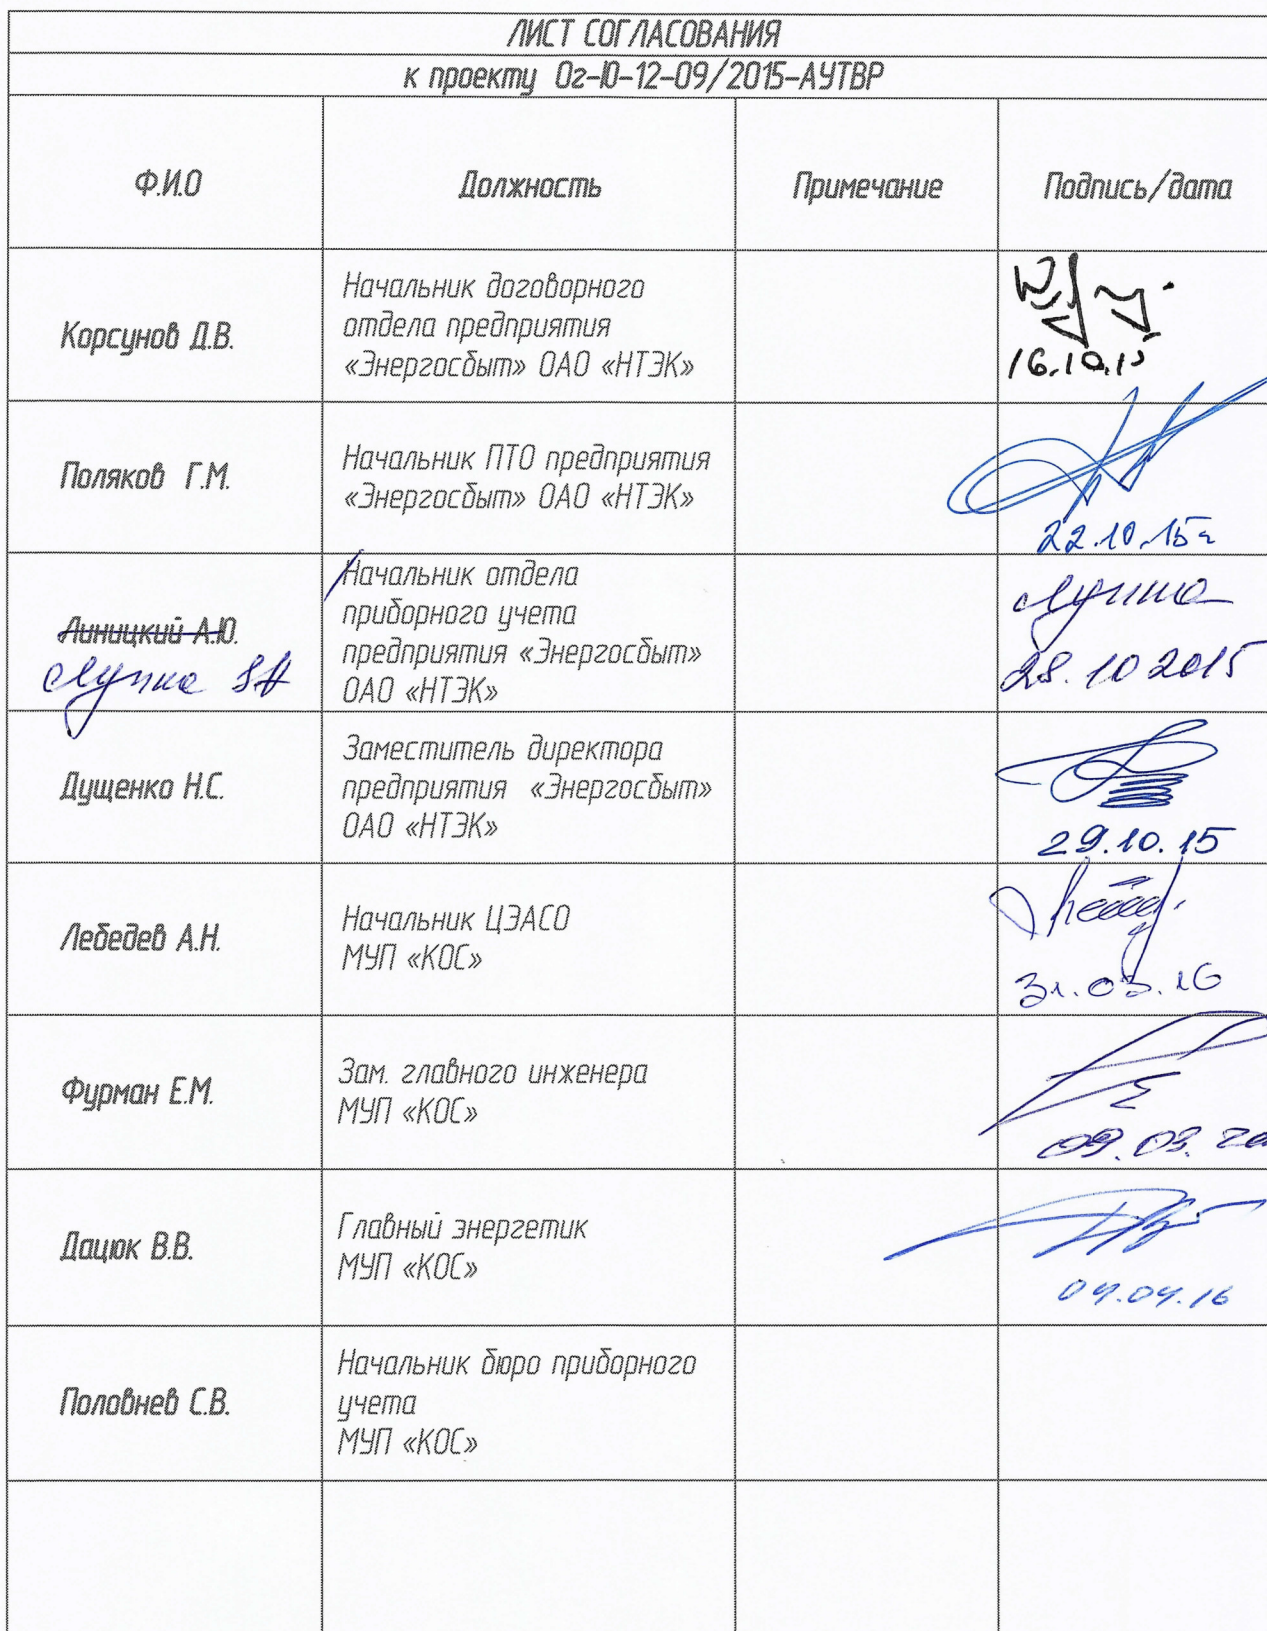 ЛИСТ СОГЛАСОВАНИЯ
к проекту Ог-Ю-12-09/2015-АУТВР
Ф.И.О
Должность
Примечание
Подпись/дата
Корсунов Д.В.
Начальник договорного
отдела предприятия
«Энергосбыт» ОАО «НТЭК»
16.10.15
Поляков Г.М.
Начальник ПТО предприятия
«Энергосбыт» ОАО «НТЭК»
22.10.15г
Линицкий А.Ю.
Начальник отдела
приборного учета
предприятия «Энергосбыт»
ОАО «НТЭК»
28.10 2015
Дущенко Н.С.
Заместитель директора
предприятия «Энергосбыт»
ОАО «НТЭК»
29.10.15
Лебедев А.Н.
Начальник ЦЭАСО
МУП «КОС»
31.03.16
Фурман Е.М.
Зам. главного инженера
МУП «КОС»
Дацюк В.В.
Главный энергетик
МУП «КОС»
04.04.16
Половнев С.В.
Начальник бюро приборного
учета
МУП «КОС»